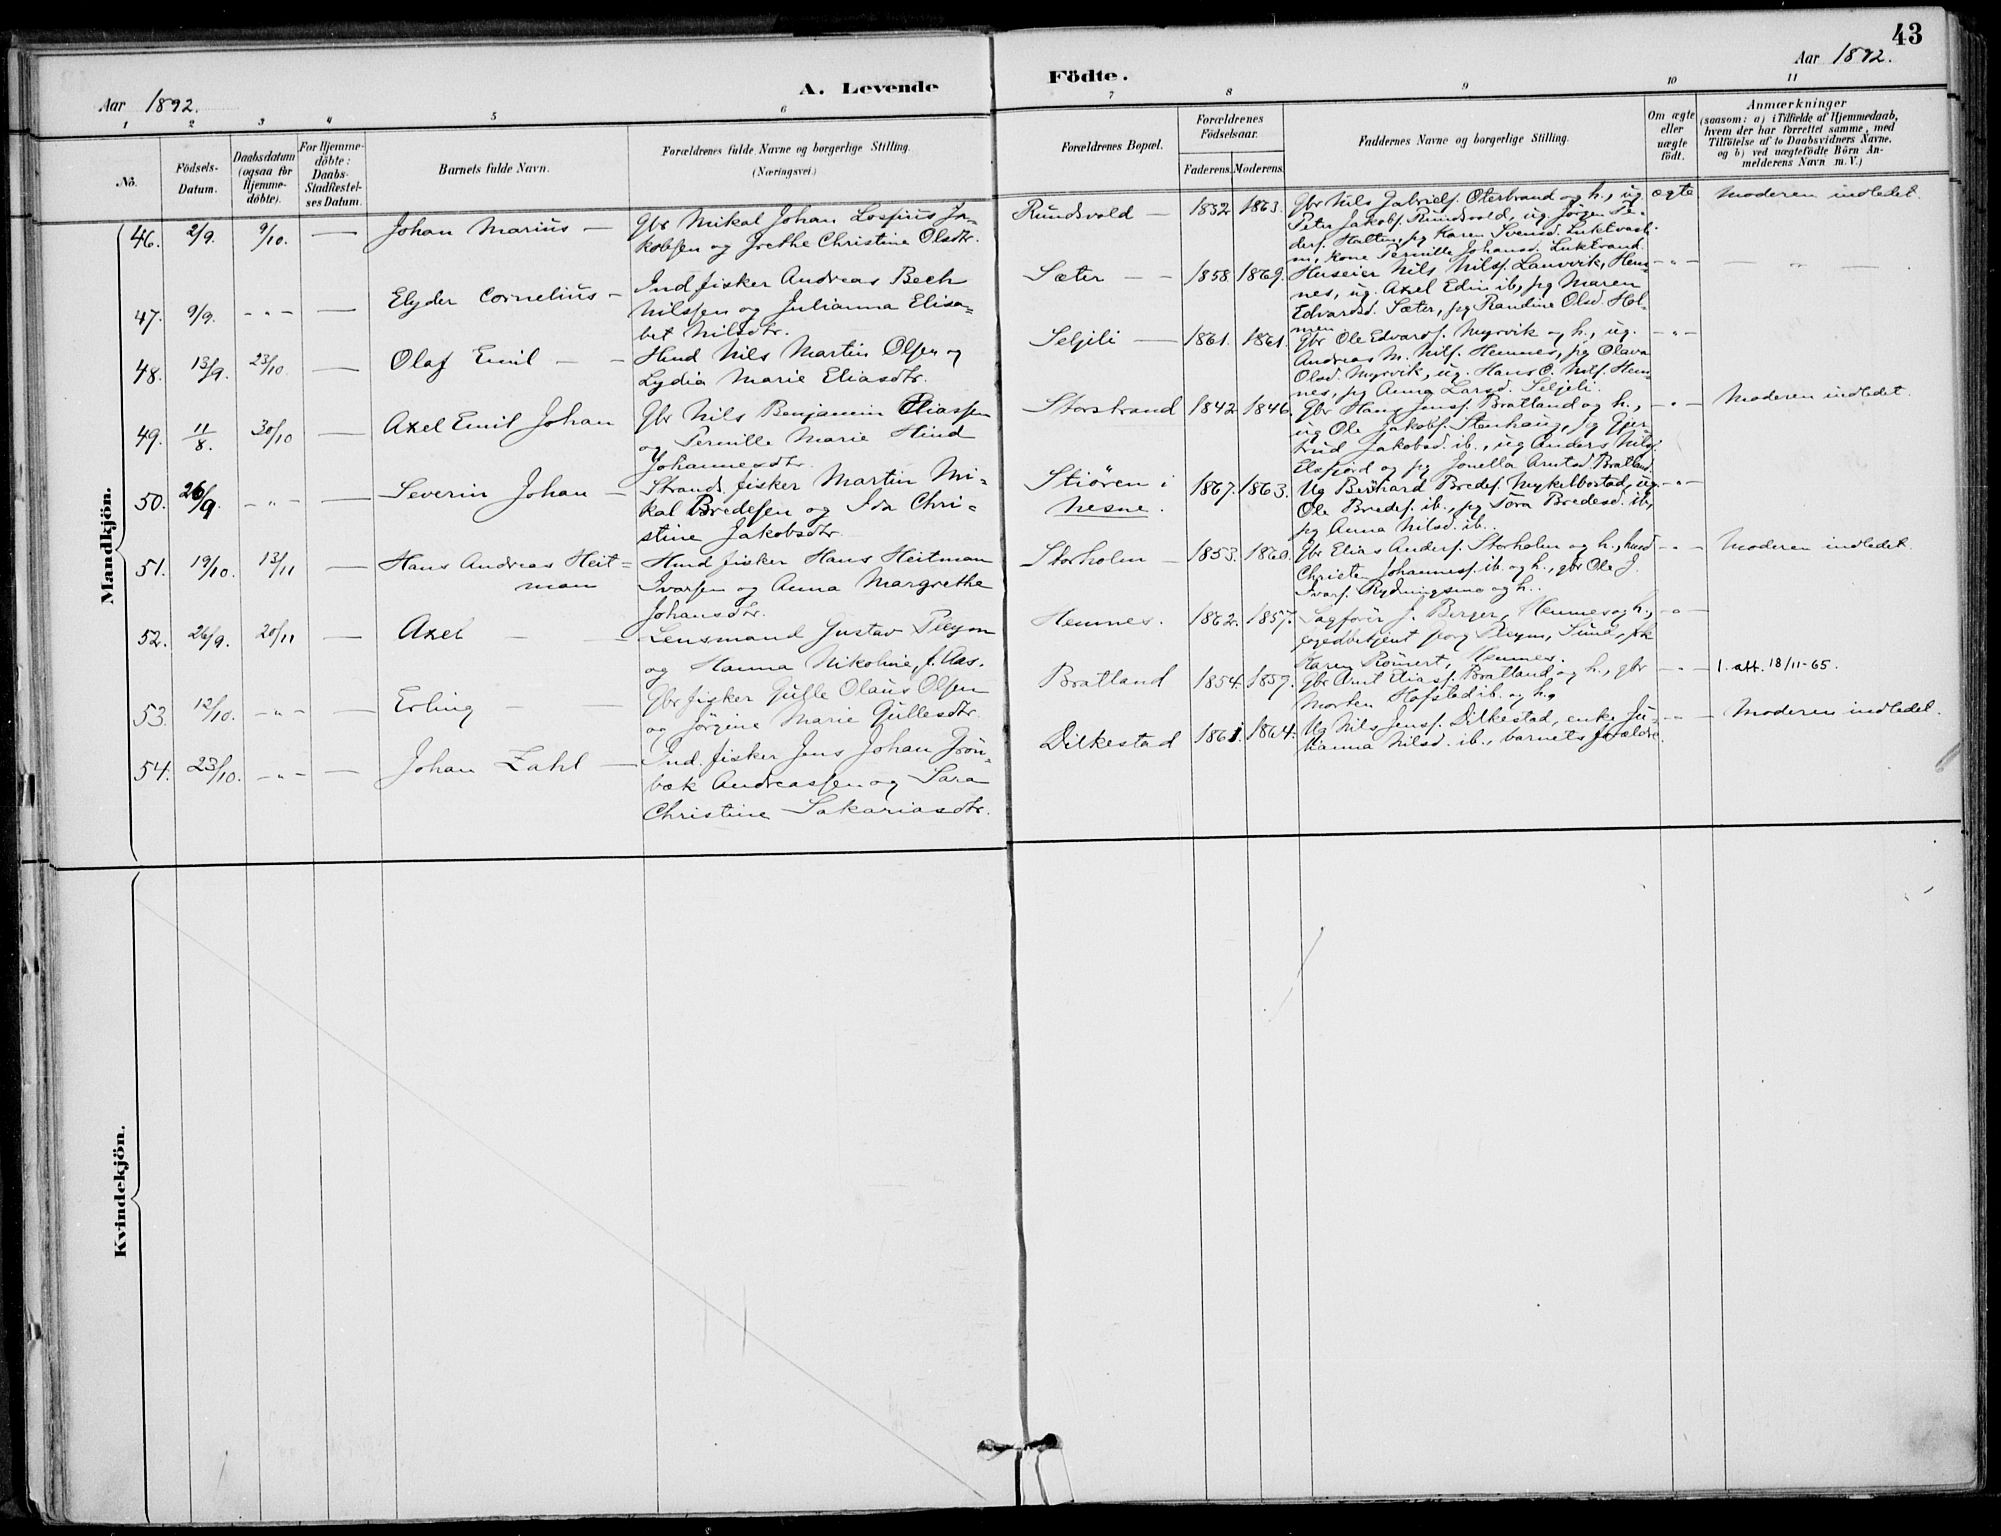 43
Aar 1892.
A. Levende Födte.
Aar 1892.
1 2 3 4 5 6 7 8 9 10 11
No.
Födsels-
Datum.
Daabsdatum
(ogsaa for
Hjemme-
döbte).
For Hjemme-
döbte:
Daabs-
Stadfæstel-
ses Datum.
Barnets fulde Navn.
Forældrenes fulde Navne og borgerlige Stilling.
(Næringsvei.)
Forældrenes Bopæl.
Forældrenes
Födselsaar.
Faderens. Moderens.
Faddernes Navne og borgerlige Stilling.
Om ægte
eller
uægte
födt.
Anmærkninger
(saasom: a) i Tilfælde af Hjemmedaab,
hvem der har forrettet samme, med
Tilföielse af to Daabsvidners Navne,
og b) ved uægtefödte Börn An-
melderens Navn m. V.)
Mandkjön.
46. 2/9. 9/10. — Johan Marius —
Gbr Mikal Johan Losfius Ja-
kobsen og Grethe Christine Olsdtr.
Rundsvold — 1852 1863.
Gbr Nils Gabrielf. Oterbrand og h., ug
Peter Jakobf. Rundsvold, ug. Jörgen Pe-
derf. Hatten, pg Karen Svensd. Luktvasli
m, kone Pernille Johansd. Luktvand
ægte Moderen indledet.
47. 9/9. - „ - — Elyder Cornelius —
Ind fisker Andreas Bech
Nilssen og Julianna Elisa-
bet Nilsdtr.
Sæter — — 1858. 1869.
Huseier Nils Nilsf. Lauvvik, Hem-
nes, ug. Axel Edin ib, pg Maren
Edvardsd. Sæter, pg Randine Olsd. Hol-
men
- „ - — „ —
48. 13/9. 23/10. — Olaf Emil — —
Hmd Nils Martin Olsen og
Lydia Marie Eliasdtr.
Seljeli — 1861. 1861.
Gbr Ole Edvardf. Myrvik og h., ug.
Andreas M. Nilf. Hemnes, pg Olava
Olsd. Myrvik, ug. Hans O. Nilf. Hem-
nes, pg Anna Larsd. Seljeli.
- „ -
49. 11/8. 30/10 — Axel Emil Johan
Gbr Nils Benjamin Eliassen
og Pernille Marie Hind
Johannesdtr.
Storstrand 1842 1846.
Gbr Hans Jensf. Bratland og h.,
ug Ole Jakobf. Stenhaug, pg Gjer-
trud Jakobsd. ib., ug Anders Nilsf.
Elsfjord og pg Jonella Arntsd. Bratland.
- „ - Moderen indledet.
50. 26/9. - „ - — Severin Johan —
Strands. fisker Martin Mi-
kal Bredesen og Ida Chri-
stine Jakobsdtr.
Stiören i
Nesne. 1867. 1863.
Ug Berhard Bredef. Nykelbostad, ug.
Ole Bredef. ib., pg Tora Bredesd. ib,
pg Anna Nilsd. ib..
- „ -
51. 19/10. 13/11 — Hans Andreas Heit-
man
Hmd fisker Hans Heitman
Ivarsen og Anna Margrethe
Johansdtr.
Storholm — 1853. 1860.
Gbr Elias Andersf. Storholm og h., hmd
Christen Johannesf. ib. og h., gbr Ole J.
Ivarf. Rydningsmo og h..
- „ - Moderen indledet.
52. 26/9. 20/11 — Axel — —
Lensmand Gustav Pleym
og Hanna Nikoline, f. Aas.
Hemnes. 1862. 1857.
Sagförer J. Berger, Hemnes og h.,
fogedbetjent Georg Pleym, , frk
Karen Römert, Hemnes.
- „ -
53. 12/10. - „ - — Erling — —
Gbr fisker Gulle Olaus Olsen
og Jörgine Marie Gullesdtr.
Bratland 1854. 1857.
Gbr Arnt Eliasf. Bratland og h., gbr
Morten Hofstad ib. og h.
- „ - 1. att. 18/11-65.
54. 23/10. - „ - — Johan Zahl —
Ind. fisker Jens Johan Grön-
bæk Andreassen og Sara
Christine Sakariasdtr.
Dilkestad 1861. 1864.
Ug Nils Jensf. Dilkestad, enke Ju-
hanna Nilsd. ib., barnets forældre.
- „ - Moderen indledet.
Kvindekjön.